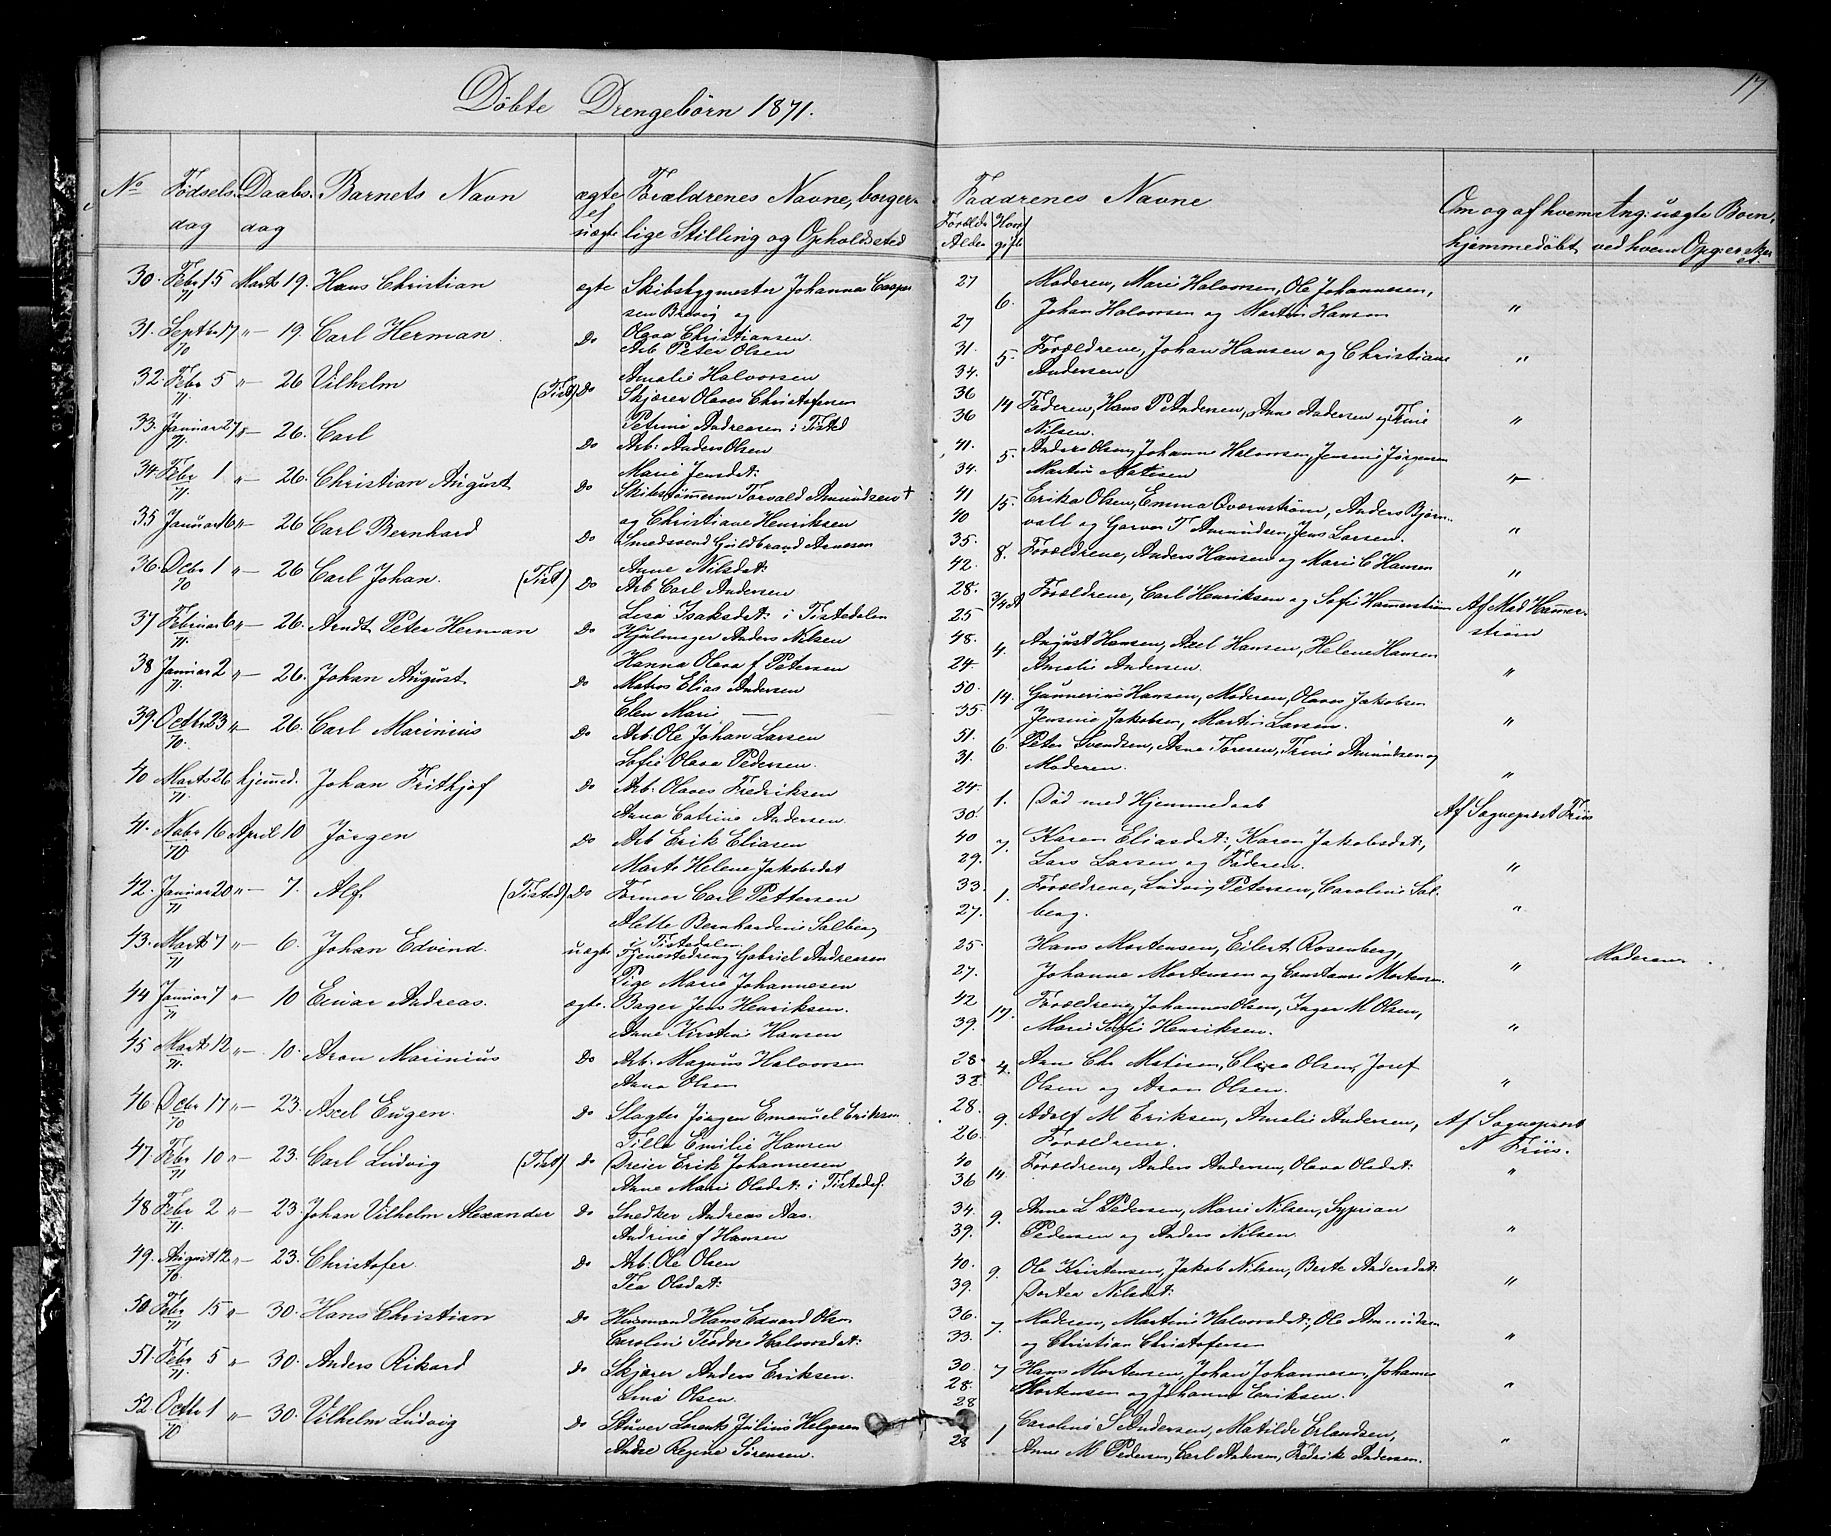 Döbte Drengebörn 1871.
17
No Fødsels Daabs Barnets Navn ægte Forældrenes Navne, borger- Faddrenes Navne Om og af hvem Ang: uægte Boen,
dag dag uægte lige Stilling og Opholdssted Alder hjemmedöbt ved hvem
30. Febr 15 Marts 19. Hans Christian ægte Skibsbygmester Johannes 27 6. Moderen, Marie Halvorsen, Ole Johannesen,
71 og 27 Johan Halvorsen og Martin Hansen "
31. Septbr 17 "- 19. Carl Herman Do Olava Christiansen
70 Arb Peter Olsen 31. 5. Forældrene, Johan Hansen og Christiane "
32. Febr 5 "- 26 Vilhelm (Tist) Do Amalie Halvorsen 34. Andersen
71. Skjærer Olaves Christofersen 36 14 Faderen, Hans P Andersen, Anne Andersen og Trine "
33. Januar 27 "- 26. Carl Petrine Andreasen i Tisted 36 Nilsen.
71. Do Arb: Anders Olsen 41. 5. Anders Olsen, Johanne Halvorsen, Jensine Jörgensen
34. Febr 1 "- 26. Christian August Marie Jensdat: 34. Martin Matisen "
71. Do Skibstömerm Torvald Amundsen + 41 15. Erika Olsen, Emma Qværnström, Anders Björn-
35 Januar 16 "- 26 Carl Bernhard og Christiane Henriksen 40 valt og T Amundsen, Jens Larsen. "
Do Smedsvend Guldbrand Arnesen 35. 8. Forældrene, Anders Hansen og Marie C Hansen
36. Dcbr 1 "- 26 Carl Johan. (Tist) Anne Nilsdat: 42. "
70 Do Arb Carl Andersen 28. 3/4 A Forældrene, Carl Henriksen og Sofie Hammerström Af Mad Hammer-
37 Februar 6 "- 26. Arndt Peter Herman Lisa Isaksdat: i Tistedalen 25 ström
71. Do Hjulmager Anders Nilsen 48. 4. August Hansen, Axel Hansen, Helene Hansen
38 Januar 2 "- 26. Johan August Hanna Olava f Petersen 24. Amalie Andersen. "
71. Do Matros Elias Andersen 50. 14. Gunnerius Hansen, Moderen, Olaves Jakobsen
39. Octbr 23 "- 26. Carl Marinius Elen Mari — 35. Jensine Jakobsen, Martin Larsen. "
70. Do Arb. Ole Johan Larsen 51. 6. Peter Svendsen, Anne Toresen, Trine Amundsen og
40 Marts 26 hjemmed. Johan Frithjof Sofie Olava Pedersen. 31. Moderen. "
71. Do Arb: Olaves Fredriksen 24. 1. Död med Hjemmedaab
41. Nobr 16 April 10 Jörgen Anna Catrine Andersen. 30. Af Sogneprest Friis
70 Do Arb Erik Eliasen 40 7. Karen Eliasdat:, Karen Jakobsdat:,
42. Januar 20 "- 7. Alf. (Tisted) Marte Helene Jakobsdat 29. Lars Larsen og Faderen. "
71 Do Former Carl Pettersen 33. 1. Forældrene, Ludvig Petersen, Caroline Sol-
43. Marts 7 "- 6. Johan Edvind. Alette Bernhardine Solberg i Tistedalen 27. berg. "
71 uægte Tjenestedreng Gabriel Andreasen 25. Hans Mortensen, Eilert Rosenberg, Moderen
44 Januar 7 "- 10 Einar Andreas. Pige Marie Johannesen 27. Johanne Mortensen og Constance Mortensen "
71 ægte. Bager Jens Henriksen. 42 17. Forældrene, Johannes Olsen, Inger M Olsen,
45 Marts 12 "- 10. Aron Marinius Anne Kirstine Hansen 39. Marie Sofie Henriksen. "
71. Do Arb: Magnus Halvorsen 28. 4. Anne Chr Matisen, Elisa Olsen, Josef
46 Dcbr 17 "- 23. Axel Eugen. Anna Olsen 38. Olsen og Aron Olsen. "
70 Do Slagter Jörgen Emanuel Eriksen 28. 9. Adolf M Eriksen, Amalie Andersen, Af Sogneprest
47 Febr 10 "- 23. Carl Ludvig (Tist) Tilla Emilie Hansen 26. Forældrene. N Friis.
71 Do Dreier Erik Johannesen 40 14. Forældrene, Anders Andersen, Olava Olsdat: "
48 Febr 2 "- 23. Johan Vilhelm Alexander Anne Marie Olsdat: i Tisteda. 36
71. Do Snedker Andreas Aas. 34. 9. Anne L Pedersen, Marie Nilsen, Syprian
49. August 12 "- 23. Christofer. Andrine f Hansen 39. Pedersen og Anders Nilsen. "
70 Do Arb: Ole Olsen 40. 9. Ole Kristensen, Jakob Nilsen, Berte Andersdat:
50 Febr 15 "- 30. Hans Christian Tea Olsdat: 39. Dortea Nilsdat: "
71 Do Husmand Hans Edvard Olsen 36. 7. Moderen, Martine Halvorsdat:, Ole Amundsen
51. Febr 5 "- 30. Anders Rikard Caroline Halvorsdat: 33. og Christian Christofersen "
71. Do Skjærer Anders Eriksen. 30. 7 Hans Mortensen, Johan Johannesen, Johannes
52. Octbr 1 "- 30. Vilhelm Ludvig Olsen. 28. Mortensen og Johanne Eriksen. "
70 Do Stuver Lorents Julius Helgesen 28 1 Caroline S Andersen, Matilde Erlandsen,
Andre Regine Sörensen. 28 Anne M Pedersen, Carl Andersen, Fredrik Andersen. "